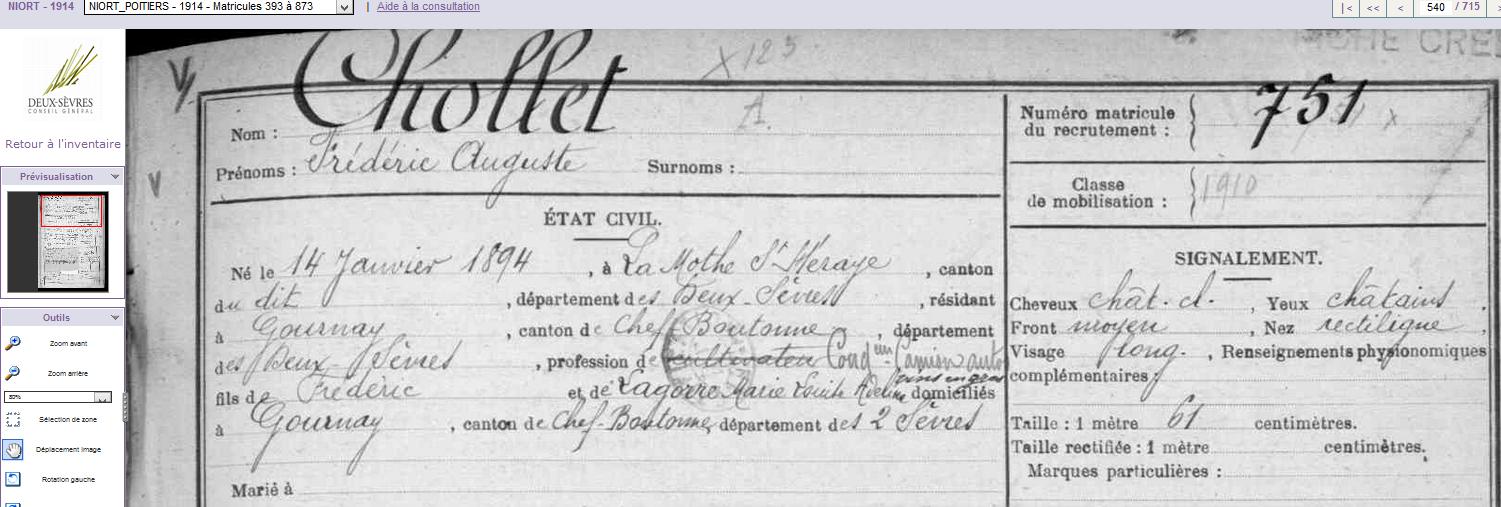 NIORT - 1914
NIORT_POITIERS - 1914 - Matricules 393 à 873
| Aide à la consultation
|< << < 540 / 715 >
DEUX-SÈVRES
CONSEIL GÉNÉRAL
Retour à l'inventaire
Prévisualisation
Outils
Zoom avant
Zoom arrière
80%
Sélection de zone
Déplacement image
Rotation gauche
X 125
Nom : Chollet
A.
Prénoms : Frédéric Auguste Surnoms :
ÉTAT CIVIL.
Né le 14 Janvier 1894, à La Mothe St Héraye, canton
du dit, département des Deux-Sèvres, résidant
à Gournay, canton de Chef Boutonne, département
des Deux-Sèvres, profession de cultivateur Condeur Camion auto
fils de Frédéric et de Lagorre Marie Louise domiciliés
à Gournay, canton de Chef-Boutonne, département des 2 Sèvres
Marié à
FICHE
Numéro matricule
du recrutement : 751 x
Classe
de mobilisation : 1910
SIGNALEMENT.
Cheveux chât. cl., Yeux châtains,
Front moyen, Nez rectiligne,
Visage long., Renseignements physionomiques
complémentaires :
Taille : 1 mètre 61 centimètres.
Taille rectifiée : 1 mètre centimètres.
Marques particulières :